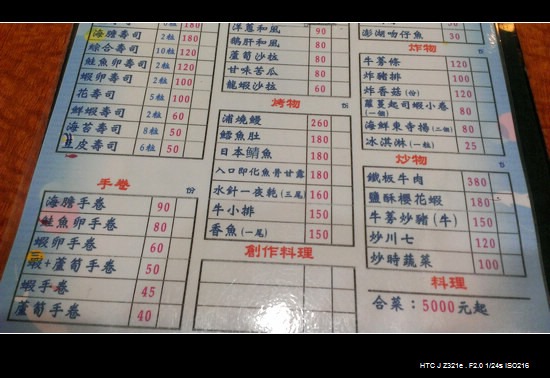 6粒 180
海膽壽司 2粒 180
綜合壽司 10粒 120
鮭魚卵壽司 2粒 120
蝦卵壽司 2粒 100
花壽司 5粒 100
鮮蝦壽司 2粒 60
海苔壽司 8粒 50
豆皮壽司 6粒 50
手卷 份
海膽手卷 90
鮭魚卵手卷 80
蝦卵手卷 60
蝦+蘆筍手卷 50
蝦手卷 45
蘆筍手卷 40
洋蔥和風 90
鵝肝和風 80
蘆筍沙拉 80
甘味苦瓜 80
龍蝦沙拉 60
烤物 份
蒲燒鰻 260
鱈魚肚 180
日本鯖魚 180
入口即化魚骨甘露 180
水針一夜乾(三尾) 160
牛小排 150
香魚(一尾) 150
創作料理
澎湖吻仔魚 80
炸物 份
牛蒡條 120
炸豬排 100
炸香菇(份) 120
蘿蔓起司蝦小卷(一個) 80
海鮮東寺揚(二個) 80
冰淇淋(一粒) 25
炒物
鐵板牛肉 380
鹽酥櫻花蝦 180
牛蒡炒豬(牛) 150
炒川七 120
炒時蔬菜 100
料理
合菜：5000元起
HTC J Z321e . F2.0 1/24s ISO216